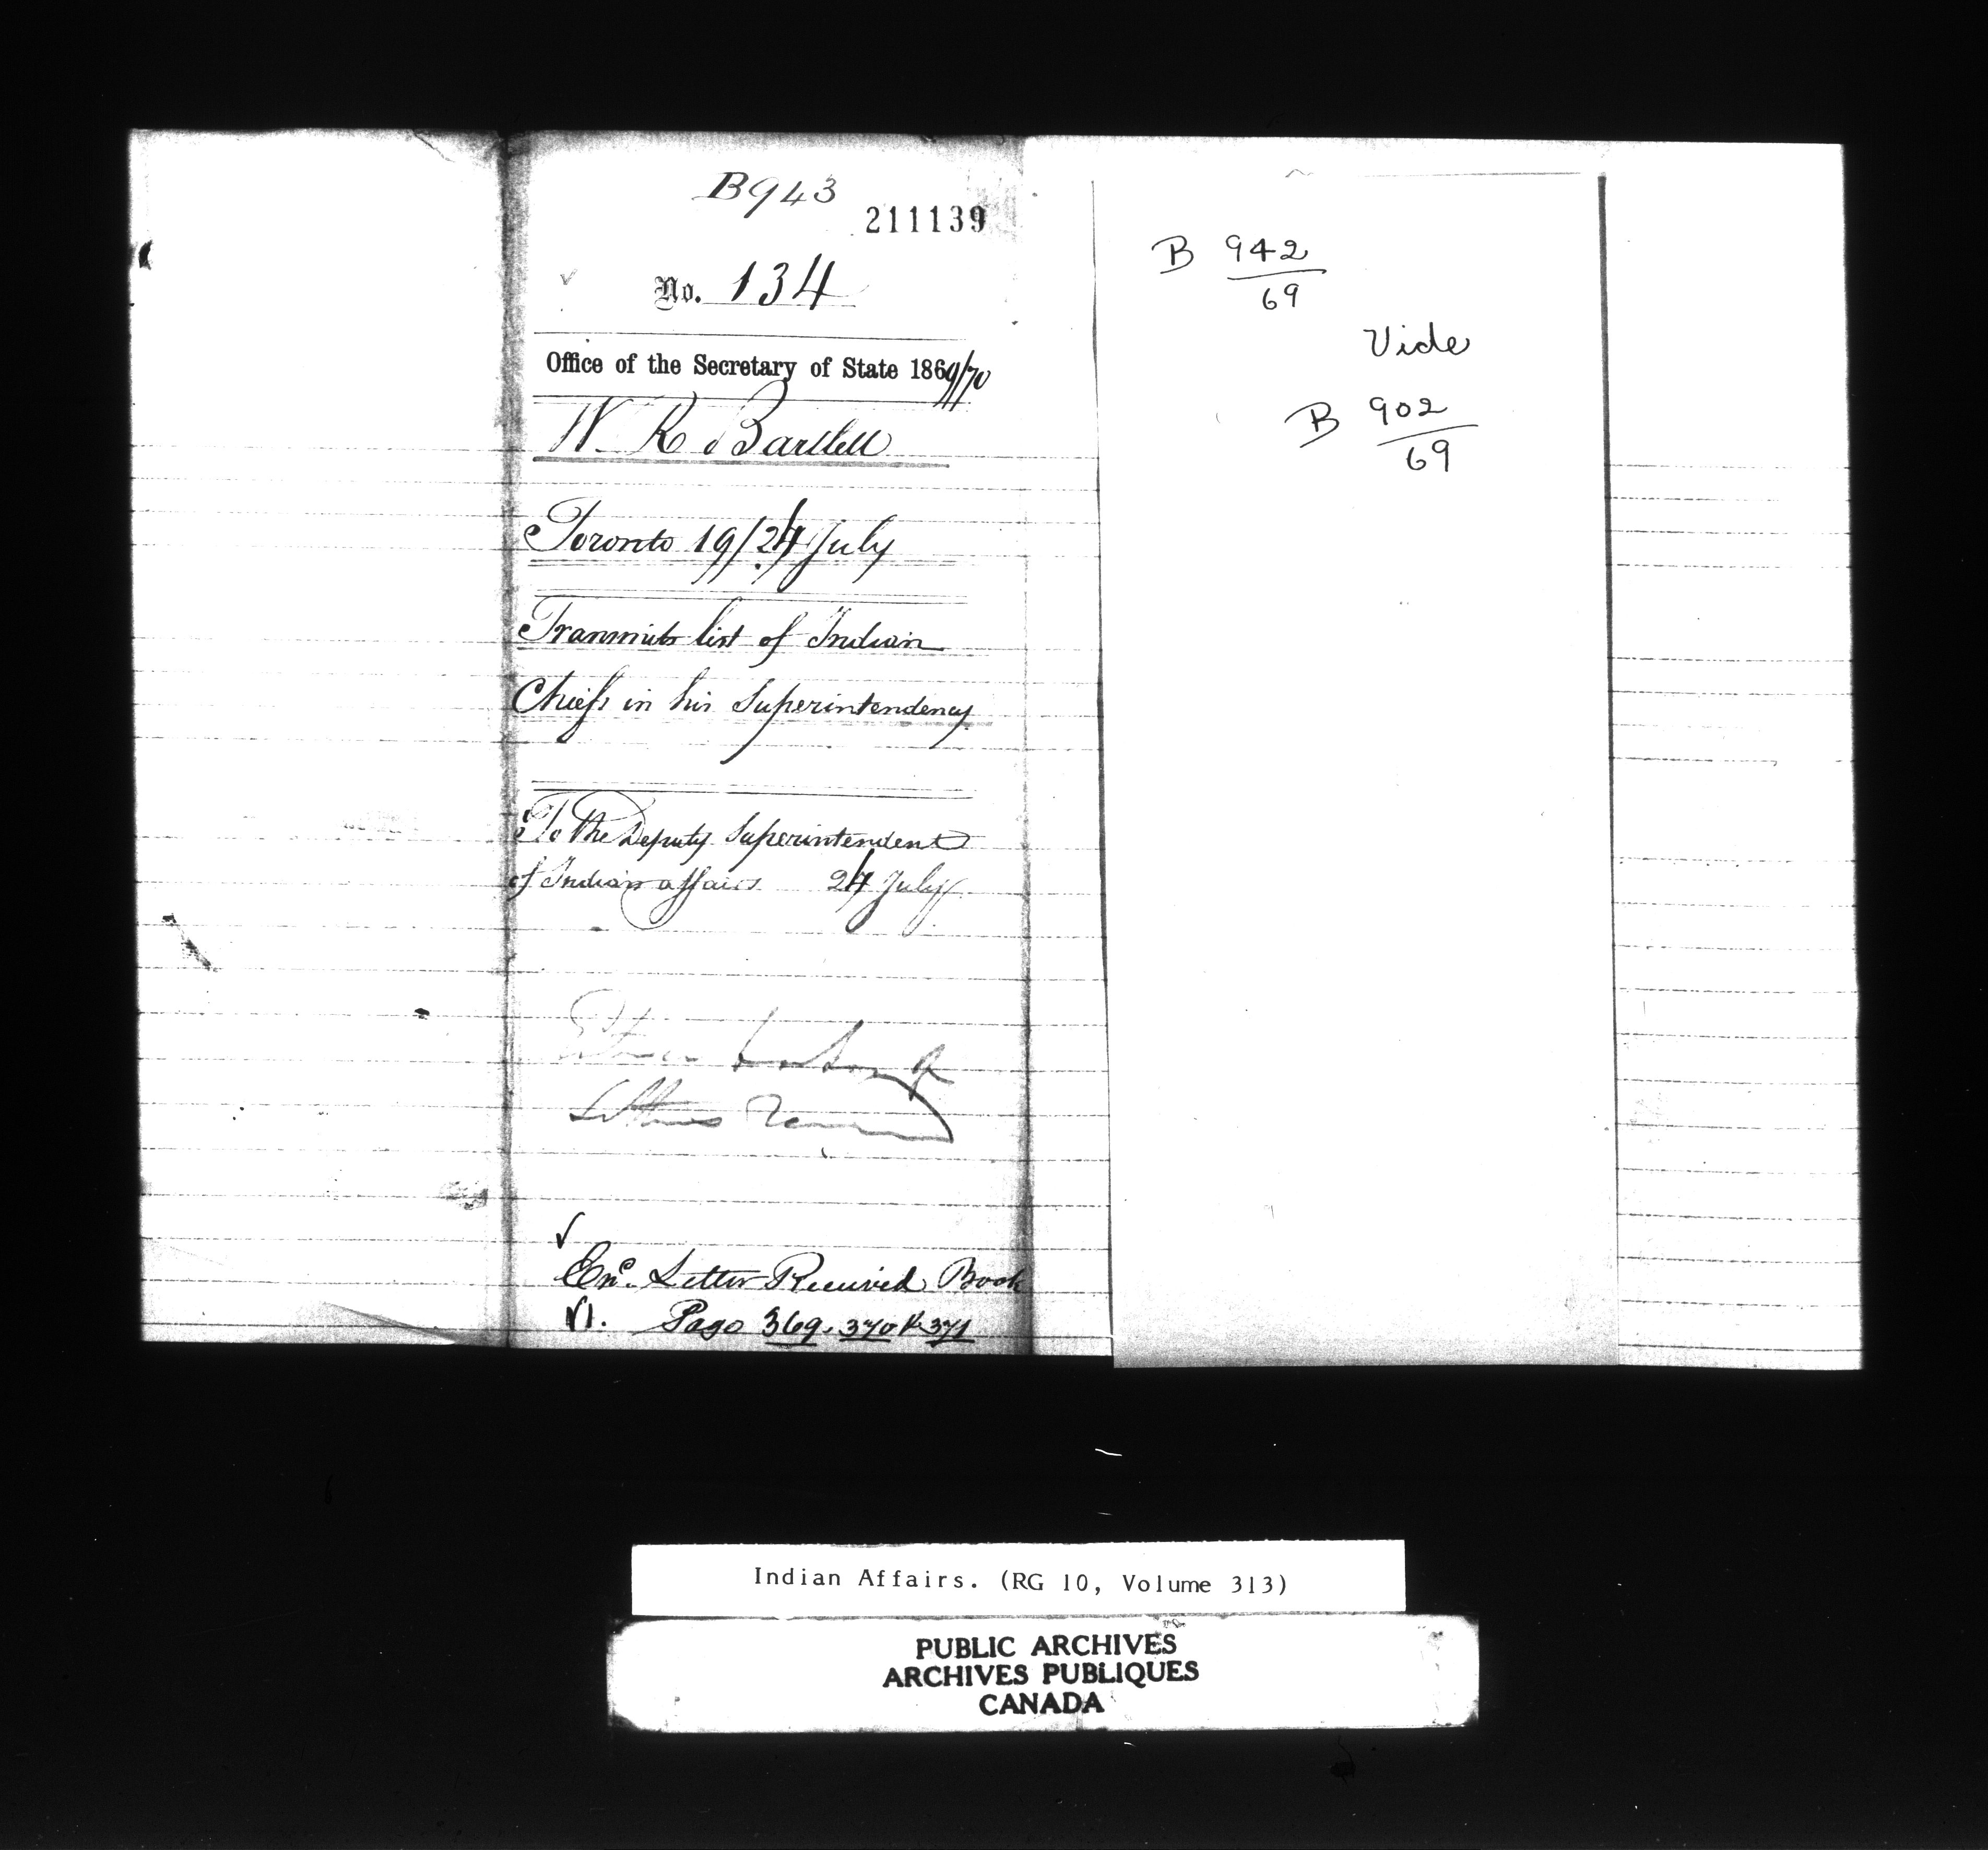 B943
211139
No. 134
Office of the Secretary of State 1869/70
W R Bartlett
Toronto 19/24 July
Transmits list of Indian
Chiefs in his Superintendency
To the Deputy Superintendent
of Indian affairs 24 July
Letters
End. Letter Received Book
Page 369. 370 & 371
B 942
69
Vide
B 902
69
Indian Affairs. (RG 10, Volume 313)
PUBLIC ARCHIVES
ARCHIVES PUBLIQUES
CANADA